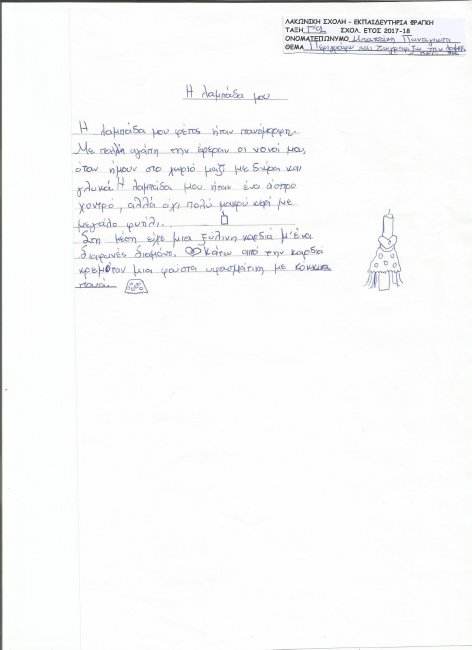 ΛΑΚΩΝΙΚΗ ΣΧΟΛΗ – ΕΚΠΑΙΔΕΥΤΗΡΙΑ ΦΡΑΓΚΗ
ΤΑΞΗ Γ'2 ΣΧΟΛ. ΕΤΟΣ 2017-18
ΟΝΟΜΑΤΕΠΩΝΥΜΟ Παναγιώτα
ΘΕΜΑ Περιγράφω και ζωγραφίζω την
Η λαμπάδα μου
Η λαμπάδα μου φέτος ήταν πανέμορφη.
Με πολλή αγάπη την έφεραν οι νονοί μου,
όταν ήμουν στο χωριό μαζί με δώρα και
γλυκά. Η λαμπάδα μου ήταν ένα άσπρο
χοντρό, αλλά όχι πολύ μακρύ κερί με
μεγάλο φυτίλι.
Στη μέση είχε μια ξύλινη καρδιά μ' ένα
διαφανές διαμάντι. Κάτω από την καρδιά
κρεμόταν μια φούστα υφασμάτινη με